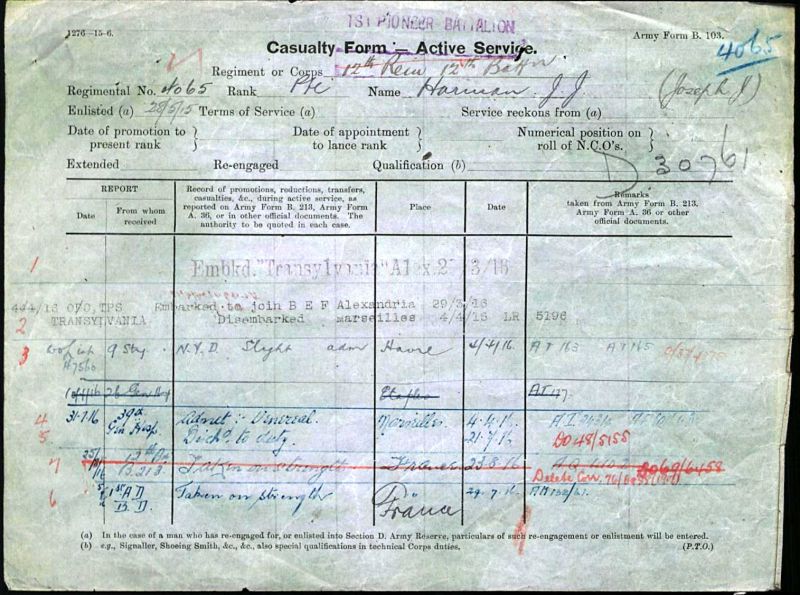 1ST PIONEER BATTALION
1276—15-6.
Army Form B. 103.
Casualty Form — Active Service.
4065
Regiment or Corps 12th Rein 12th Battn
Regimental No. 4065 Rank Pte Name Harman J J (Joseph J)
Enlisted (a) 28/5/15 Terms of Service (a) Service reckons from (a)
Date of promotion to present rank } Date of appointment to lance rank } Numerical position on roll of N.C.O's. }
Extended Re-engaged Qualification (b)
D 30761
REPORT
Date
From whom received
Record of promotions, reductions, transfers, casualties, &c., during active service, as reported on Army Form B. 213, Army Form A. 36, or in other official documents. The authority to be quoted in each case.
Place
Date
Remarks
taken from Army Form B. 213, Army Form A. 36 or other official documents.
1
Embkd. "Transylvania" Alex. 2 3/16
4/4/16 O/C TPS Embarked to join B E F Alexandria 29/3/16
2 TRANSYLVANIA Disembarked marseilles 4/4/16 LR 5196
3 A7560 9 Sty N.Y.D. Slight adm Havre 4/4/16 AT 163 AT 165
26 Gen Etaples AT
4 31-7-16 39th Gen Hosp Admet: Venereal. Marseilles 4.4.16
5 Disch'd to duty. 21.7.16 DO 48/5155
7 25/ /16 12th B.213 Taken on strength France 23.8.16 DO69/6458
Delete Corr.
6 1st A D B.D. Taken on strength " 29.7.16
France
(a) In the case of a man who has re-engaged for, or enlisted into Section D. Army Reserve, particulars of such re-engagement or enlistment will be entered.
(b) e.g., Signaller, Shoeing Smith, &c., &c., also special qualifications in technical Corps duties.
(P.T.O.)